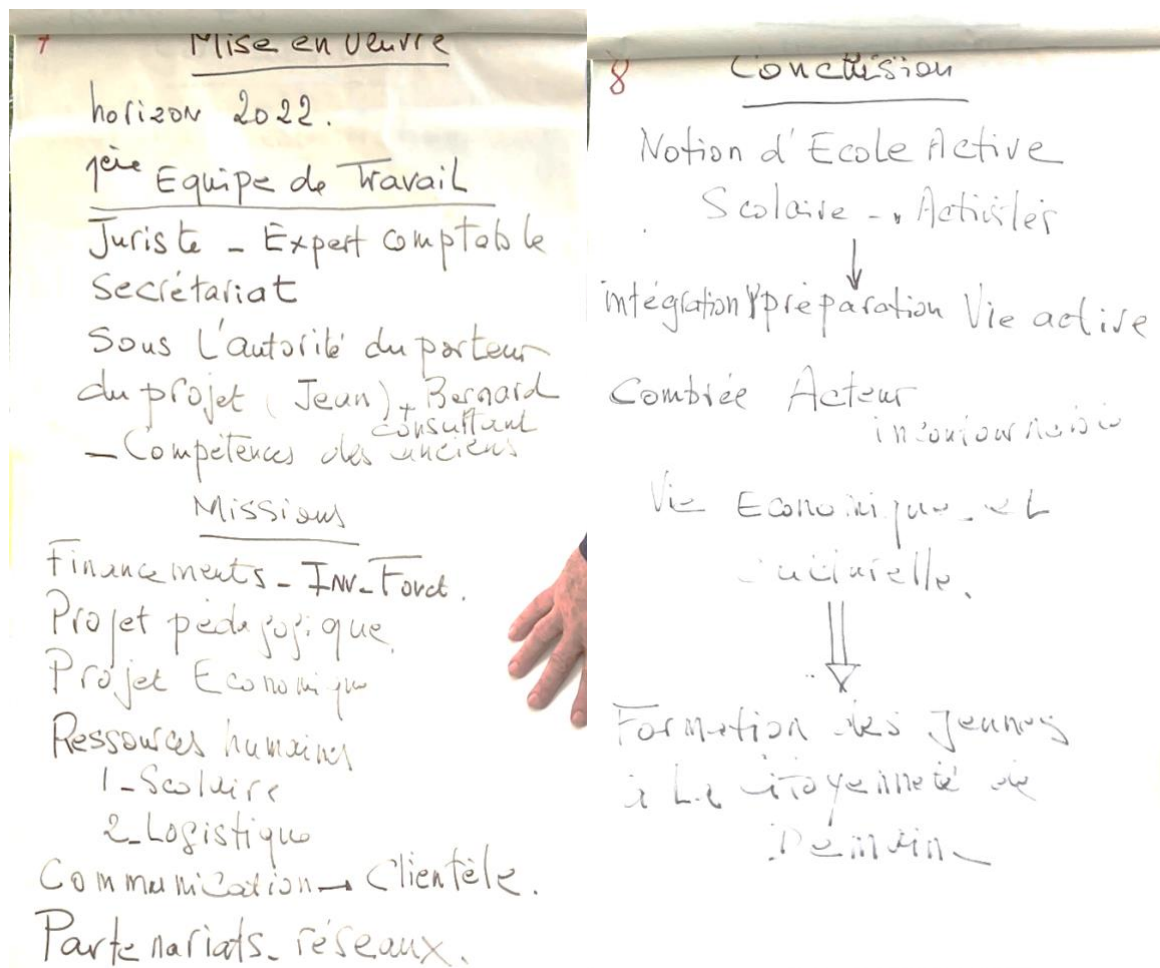 7
Mise en Oeuvre
horizon 2022.
1ère Equipe de Travail
Juriste - Expert comptable
Secrétariat
Sous l'autorité du porteur
du projet (Jean) + Bernard
consultant
- Compétences des anciens
Missions
Financements - Inv-Fonct.
Projet pédagogique.
Projet Economique
Ressources humaines
1-Scolaire
2-Logistique
Communication → Clientèle.
Partenariats - réseaux.
8
Conclusion
Notion d'Ecole Active
Scolaire - Activités
↓
intégration préparation Vie active
Combrée Acteur
incontournable
Vie Economique - et
culturelle.
⇓
Formation des Jeunes
à La citoyenneté de
Demain -